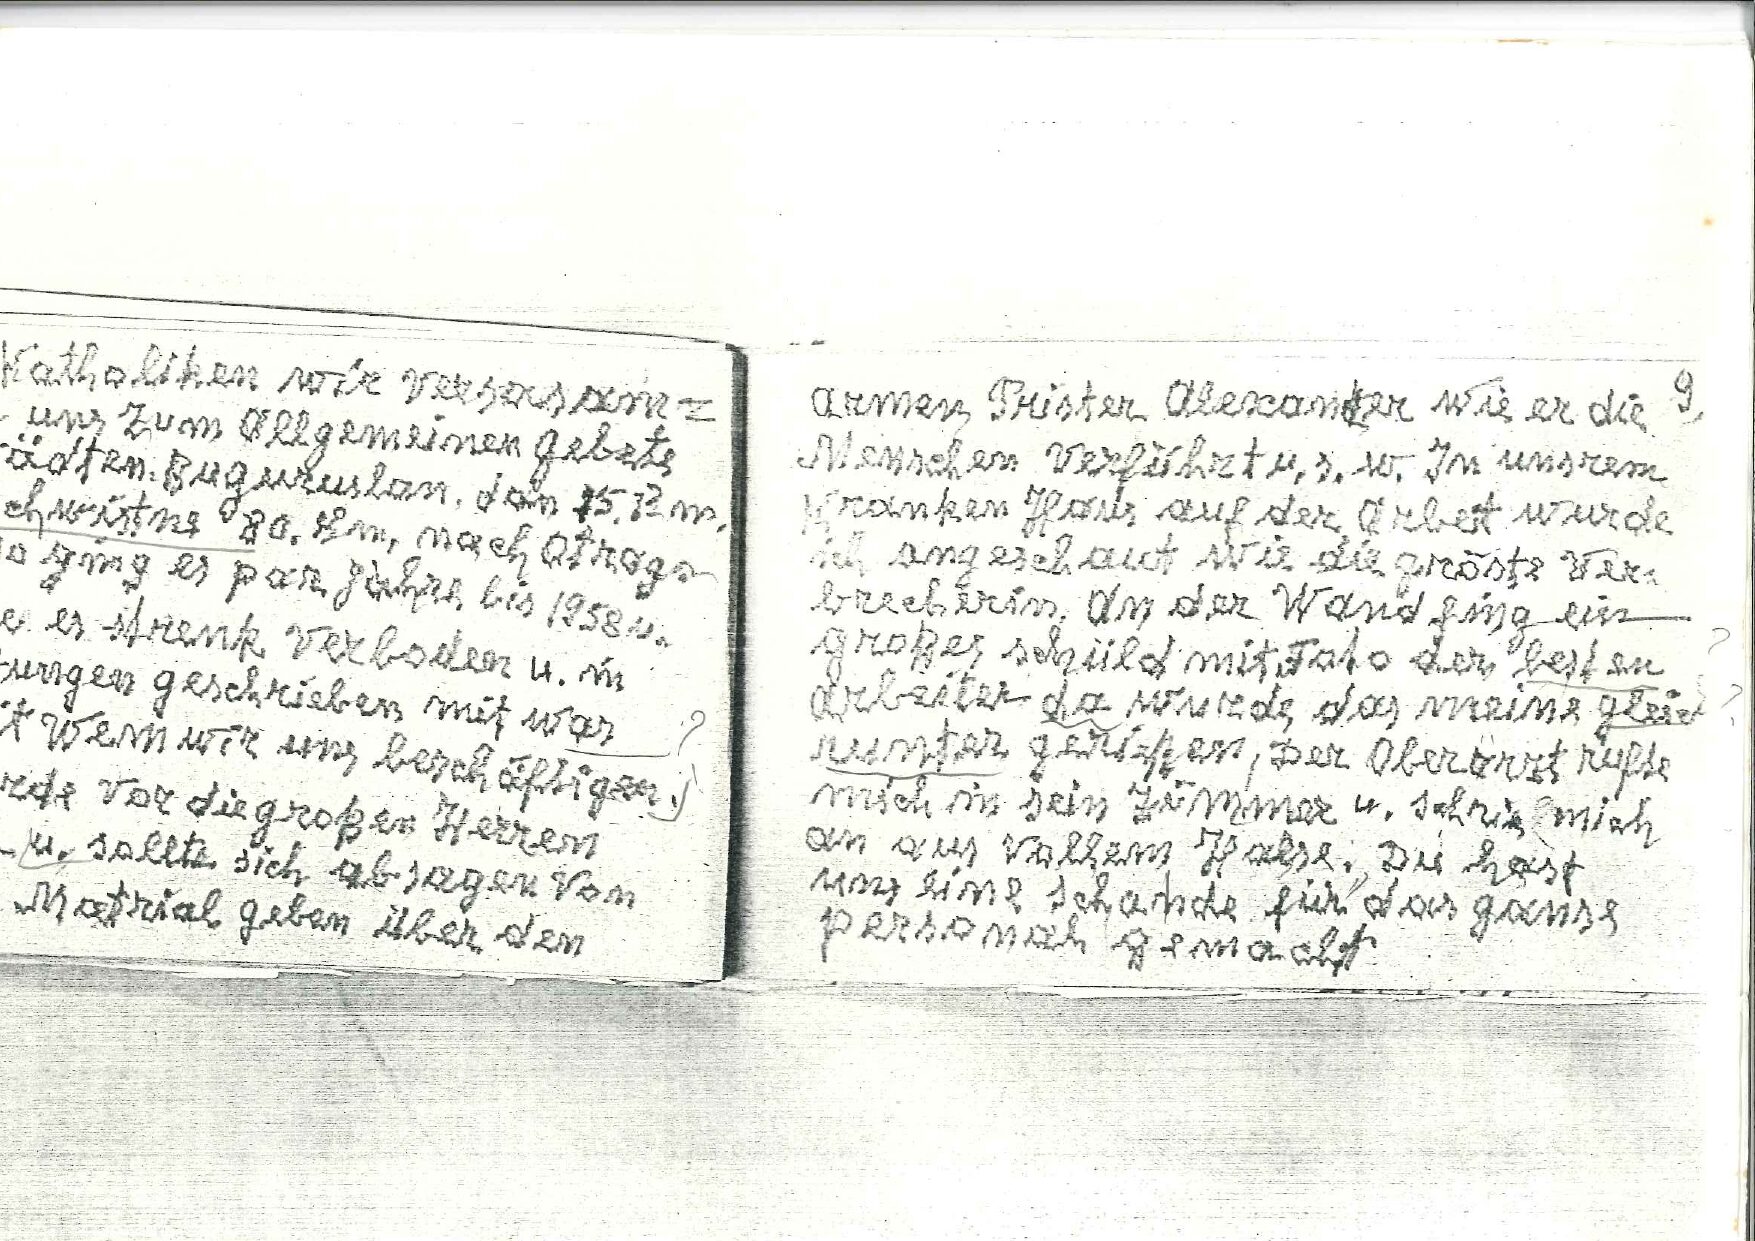 Katholiken wir versorsam=
uns zum Allgemeinen gebete
ädten. Buguruslan. dan 15.
chwistne 80. Km, nach
o ging es par Jahre bis 1958 u.
es strenk Verboden u. in
tungen geschrieben mit was
it Wem wir uns beschäftigen.
rde Vor die großen Herren
u. sollte sich absagen Von
Matrial geben über den
9.
armen Prister Alexander wie er die
Menschen Verführt u. s. w. In unsrem
Kranken Haus auf der Arbeit wurde
ich angeschaut wie die gröste Ver=
brecherin. An der Wand hing ein
großes schüld mit Foto der besten
Arbeiter da wurde das meine gleich
runter gerißen, Der Oberarzt rufte
mich in sein Zümmer u. schrie mich
an aus Vollem Halse. Du hast
uns eine schande für das ganse
personal gemacht